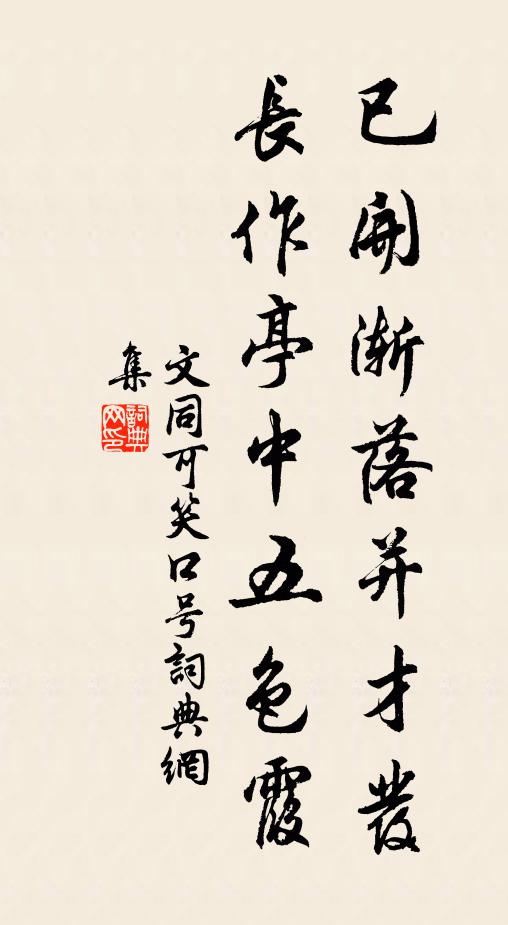 已開漸落并才發
長作亭中五色霞
文同可笑口号詞典網
集
詞典網印